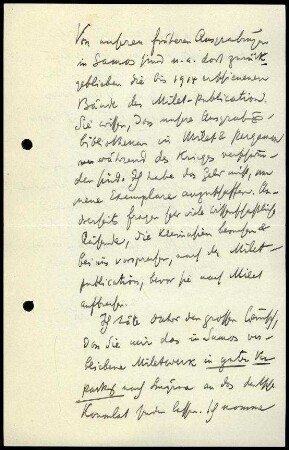 Von unseren früheren Ausgrabungen
in Samos sind u. a. dort zurück
geblieben die bis 1914 erschienenen
Bände der Milet-Publication.
Sie wissen, dass unsere Ausgrabungs
bibliotheken in Milet & Pergamon
während des Kriegs verschwun
den sind. Ich habe das Geld nicht, um
neue Exemplare anzuschaffen. An
derseits fragen sehr viele wissenschaftliche
Reisende, die Kleinasien besuchen &
bei uns vorsprechen, nach der Milet-
publication, bevor sie nach Milet
aufbrechen.
Ich bitte daher den grossen
dass Sie mir das in Samos ver
bliebene Miletwerk in guter Ver
packung nach Smyrna an das deutsche
Konsulat senden lassen. Ich komme